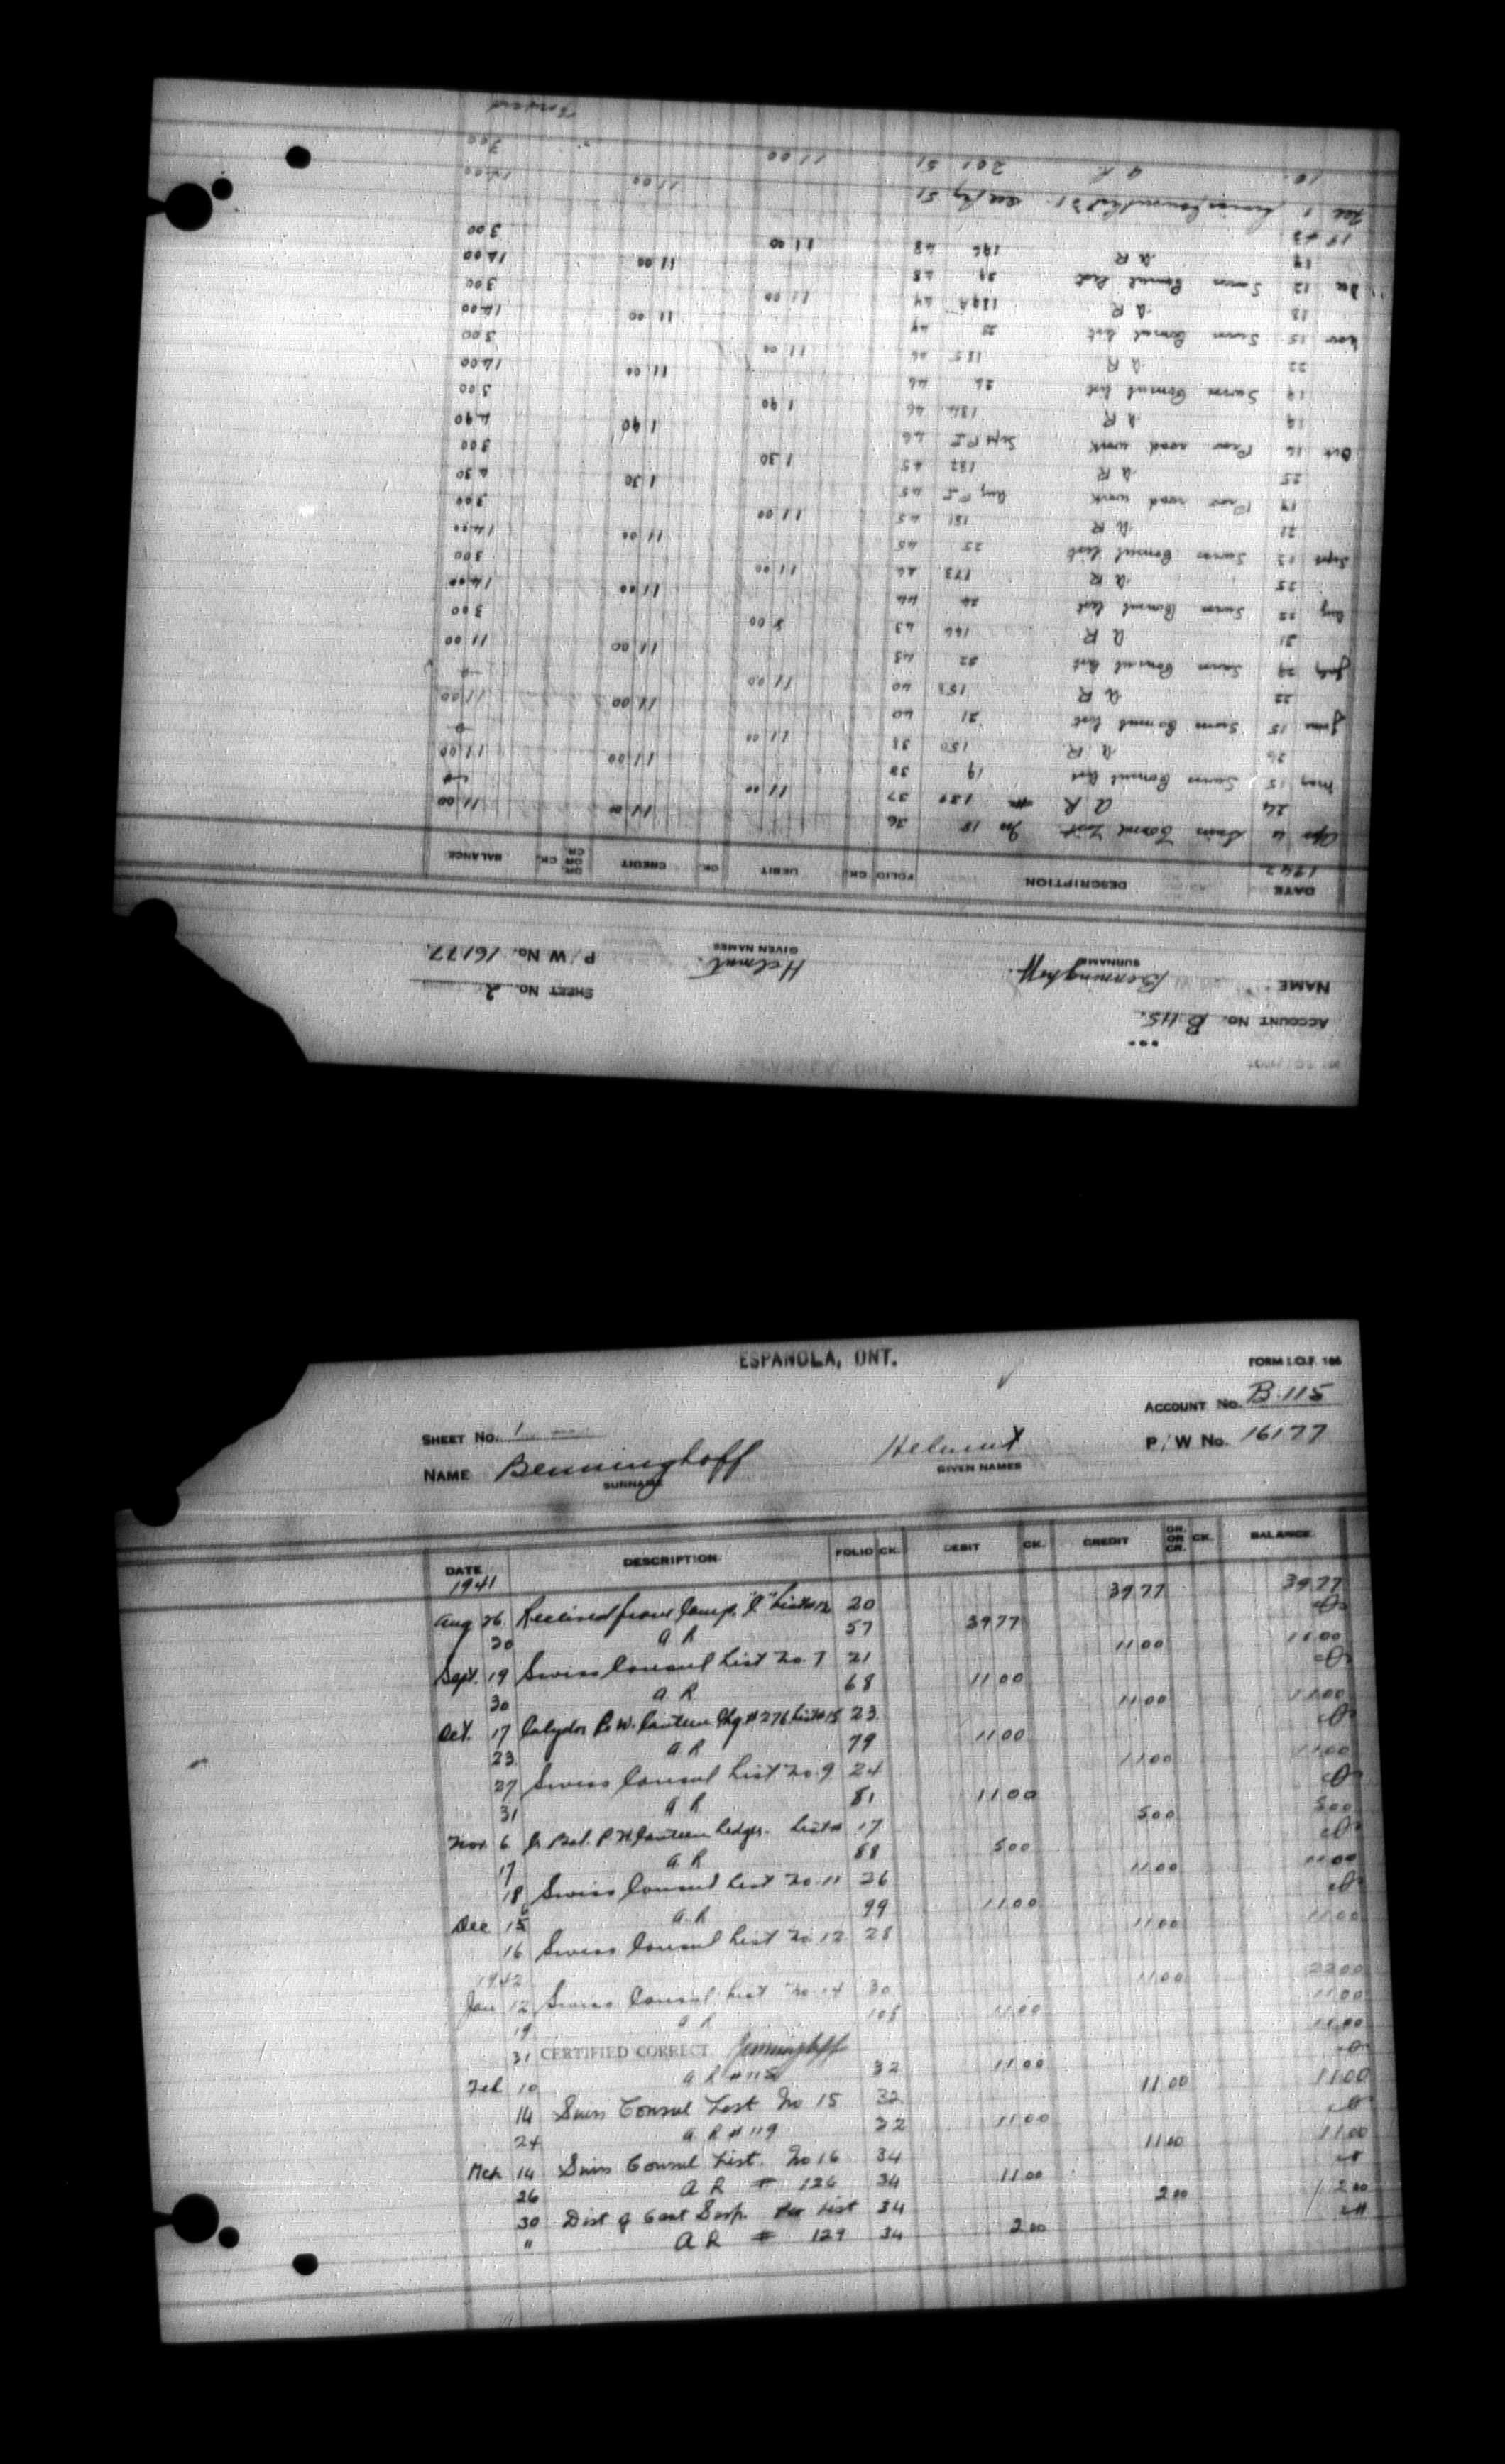 ESPANOLA, ONT.
FORM I.O.F. 166
ACCOUNT No. B.115
SHEET No. 1
P/W No. 16177
NAME Benninghoff Helmut
SURNAME GIVEN NAMES
DATE DESCRIPTION FOLIO CK. DEBIT CK. CREDIT DR. OR CR. CK. BALANCE
1941
Aug 26 Received from Camp List #12 20 39 77 39 77
30 A R 57 39 77 0
Sept. 19 Swiss Consul List No. 7 21 11 00 11 00
30 A R 68 11 00 0
Oct. 17 Calydor P.W. Canteen Chq # 276 List # 15 23 11 00 11 00
23 A R 79 11 00 0
27 Swiss Consul List No. 9 24 11 00 11 00
31 A R 81 11 00 0
Nov. 6 Bal. P.W. Canteen Ledger List # 17 5 00 5 00
17 A R 88 5 00 0
18 Swiss Consul List No. 11 26 11 00 11 00
Dec 15 A R 99 11 00 0
16 Swiss Consul List No. 12 28 11 00 11 00
1942
Jan 12 Swiss Consul List No. 14 30 11 00 22 00
19 A R 108 11 00 11 00
31 CERTIFIED CORRECT Benninghoff 11 00
Feb 10 A R # 115 32 11 00 0
14 Swiss Consul List No 15 32 11 00 11 00
24 A R # 119 32 11 00 0
Mch 14 Swiss Consul List No 16 34 11 00 11 00
26 A R # 126 34 11 00 0
30 Dist of Cant Susp. List 34 2 00 2 00
" A R # 129 34 2 00 0
ESPANOLA, ONT.
ACCOUNT No. B.115.
SHEET No. 2
NAME Benninghoff. Helmut. P/W No. 16177.
SURNAME GIVEN NAMES
DATE DESCRIPTION FOLIO CK. DEBIT CK. CREDIT DR. OR CR. CK. BALANCE
1942
Apr Swiss Consul List No 18 36 11 00 11 00
24 A R # 139 37 11 00 0
May 15 Swiss Consul List 19 38 11 00 11 00
26 A R 150 38 11 00 0
June 15 Swiss Consul List 21 40 11 00 11 00
22 A R 158 40 11 00 0
July 29 Swiss Consul List 22 43 11 00 11 00
31 A R 166 43 8 00 3 00
Aug 22 Swiss Consul List 24 44 11 00 14 00
25 A R 173 44 11 00 3 00
Sept 12 Swiss Consul List 25 45 11 00 14 00
21 A R 181 45 11 00 3 00
19 Prov road work Aug P.I 45 1 30 4 30
25 A R 182 45 1 30 3 00
Oct 16 Prov road work Sept P.I 46 1 90 4 90
19 A R 184 46 1 90 3 00
19 Swiss Consul List 26 46 11 00 14 00
22 A R 185 46 11 00 3 00
Nov 15 Swiss Consul List 11 00 14 00
18 A R 11 00 3 00
Dec 12 Swiss Consul List 48 11 00 14 00
19 A R 196 48 11 00 3 00
1943
1 Swiss Consul List 51 11 00 14 00
10. A R 201 51 11 00 3 00
Forward